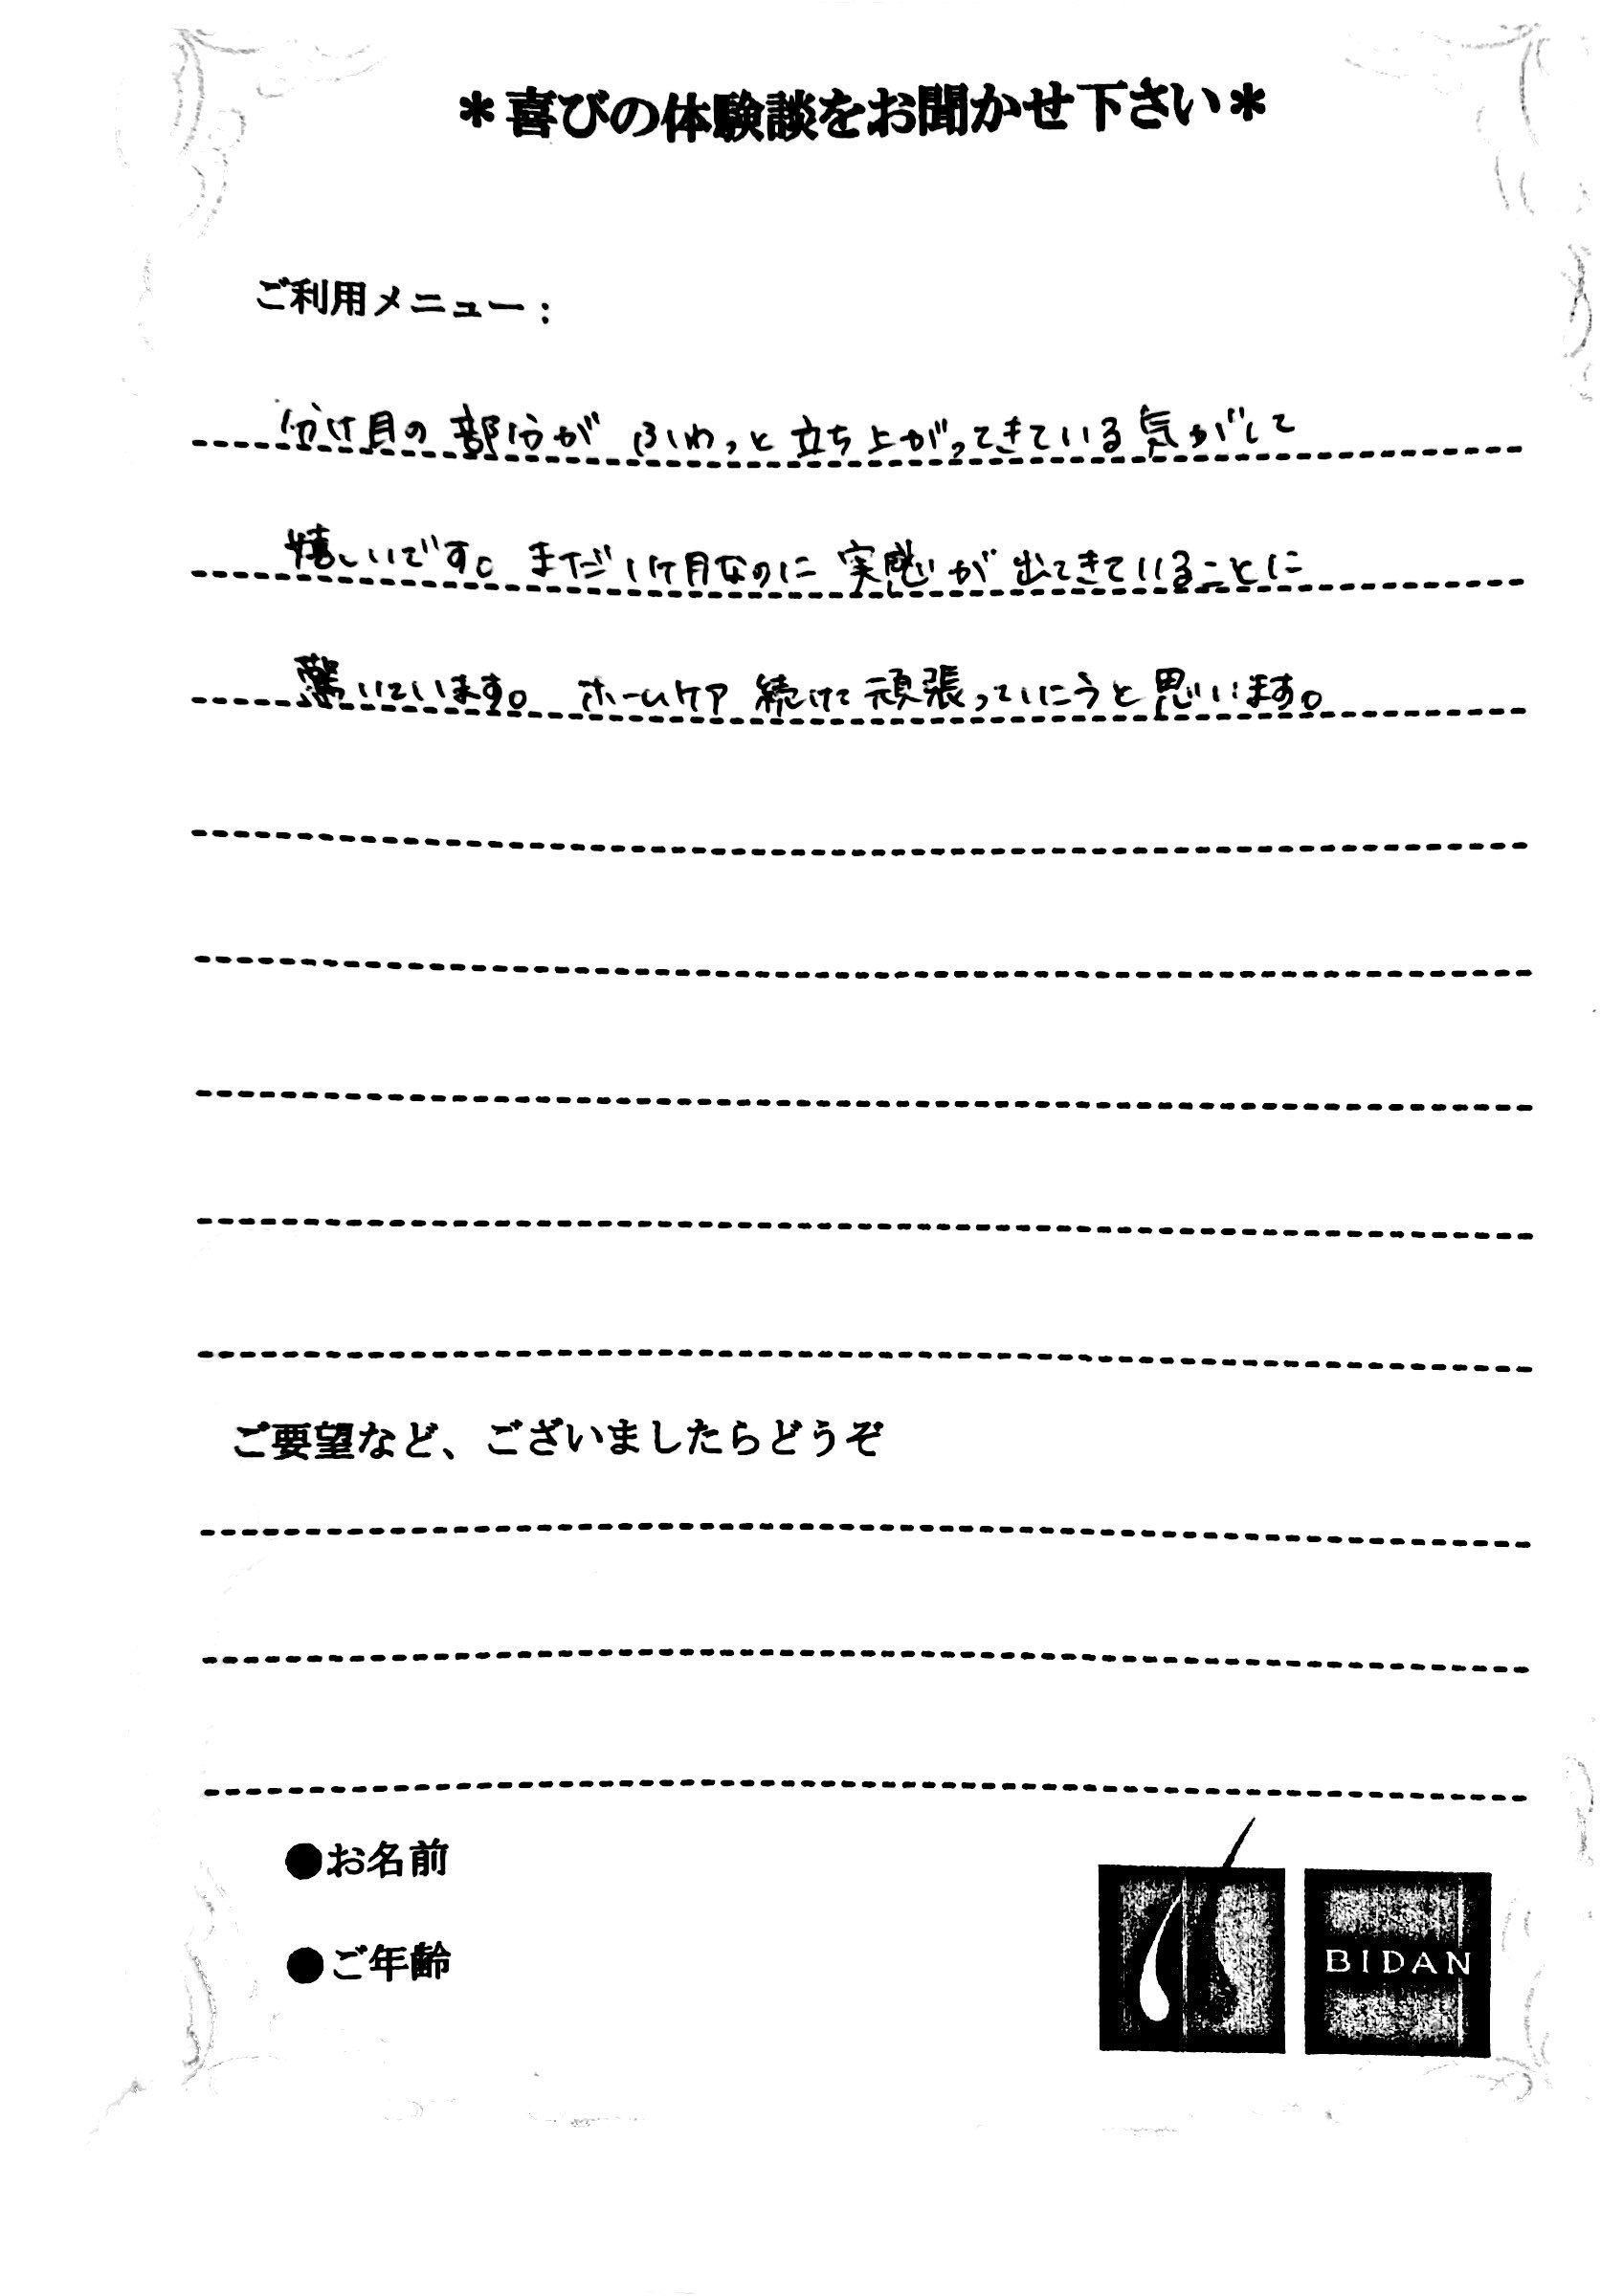 ＊喜びの体験談をお聞かせ下さい＊
ご利用メニュー：
分け目の部分が ふわっと立ち上がってきている気がして
嬉しいです。まだ1ヶ月なのに 実感が出てきていることに
驚いています。 ホームケア 続けて頑張っていこうと思います。
ご要望など、ございましたらどうぞ
●お名前
●ご年齢
BIDAN